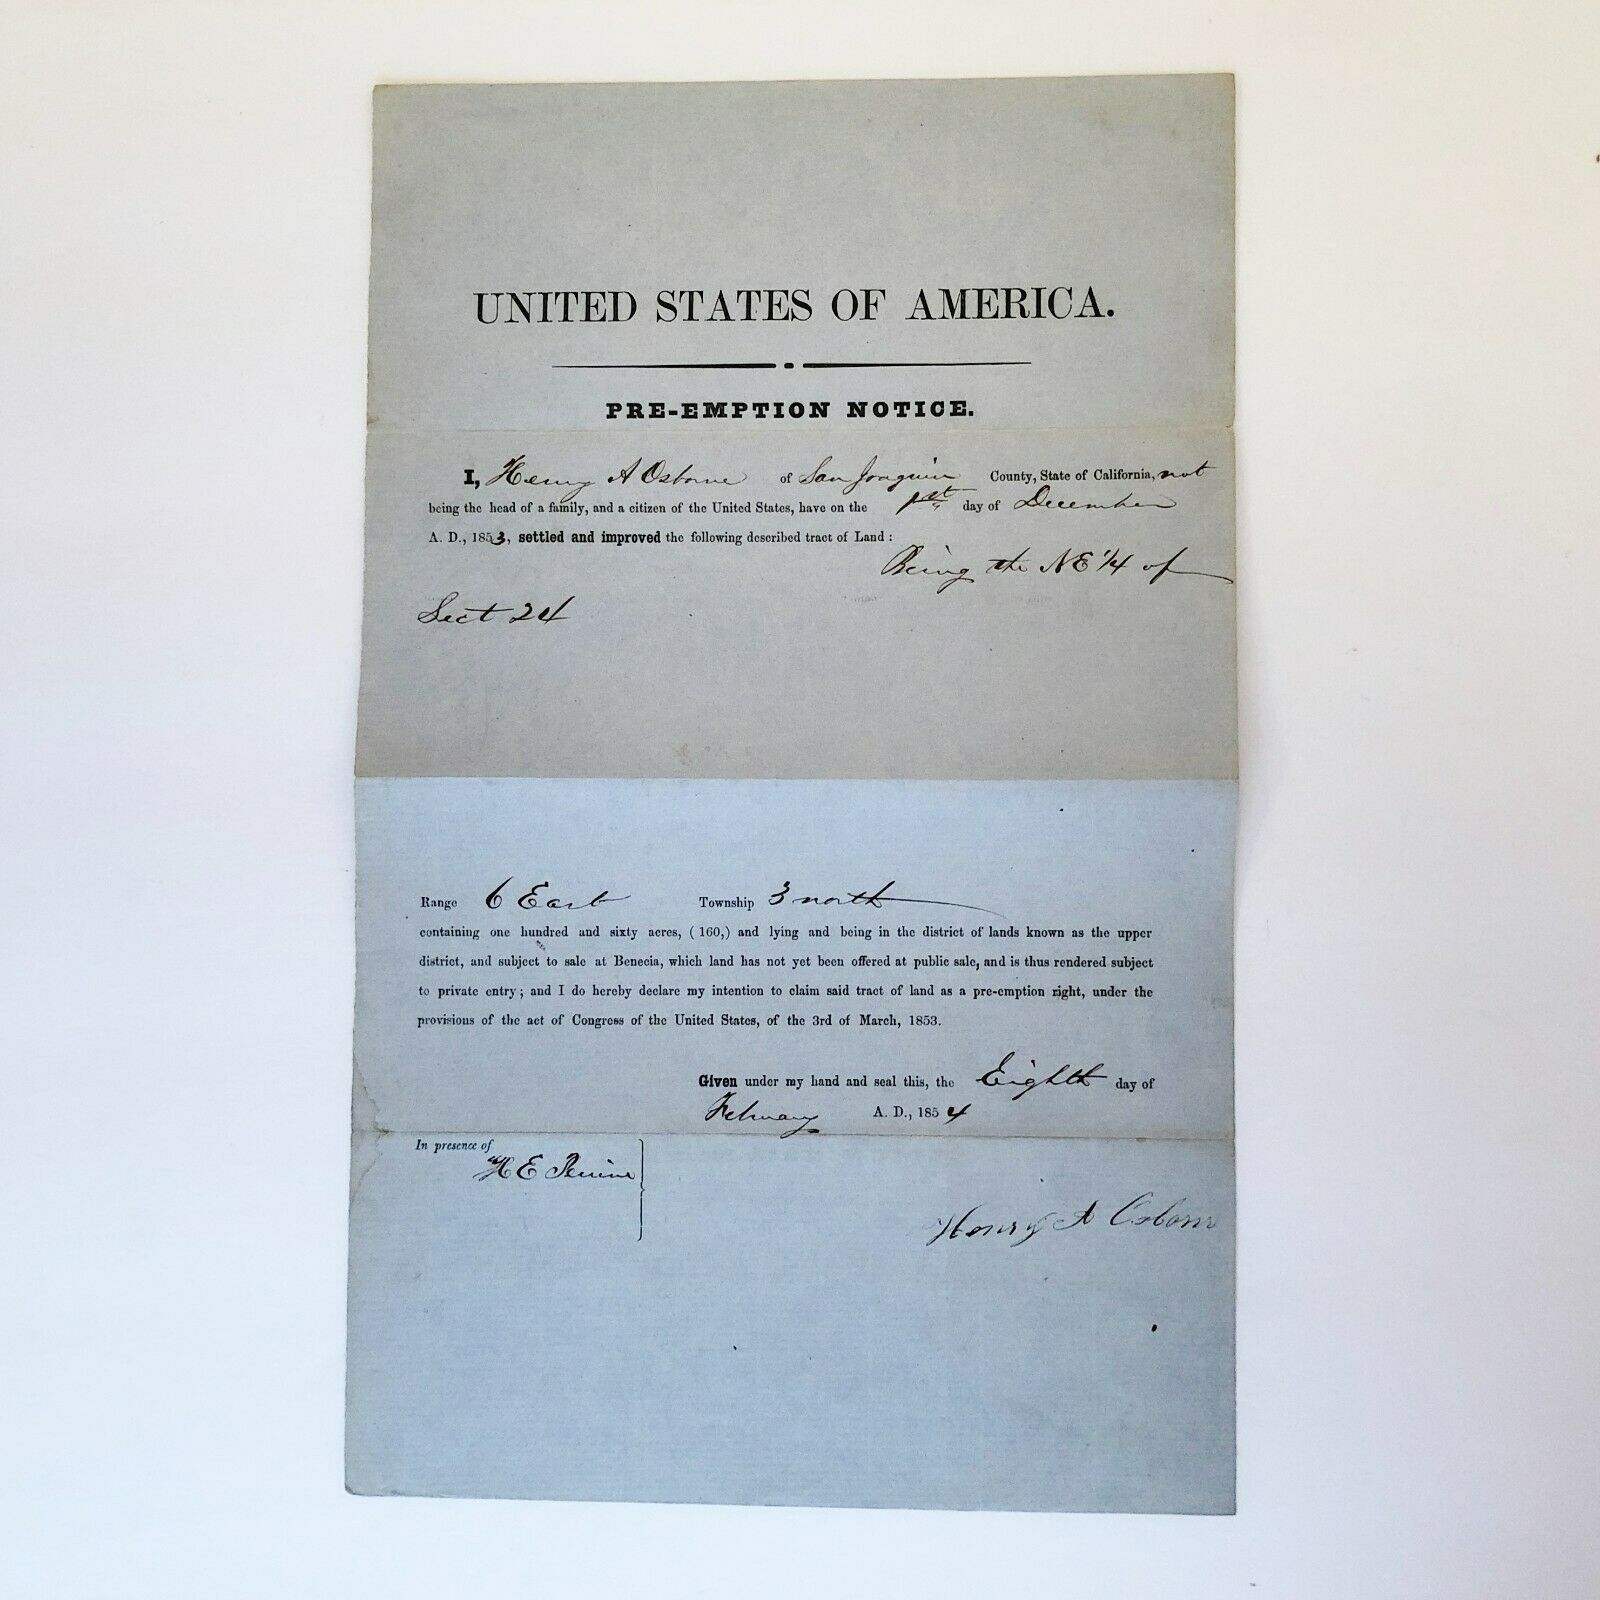 UNITED STATES OF AMERICA.
PRE-EMPTION NOTICE.
I, Henry A Osborne of San Joaquin County, State of California, not
being the head of a family, and a citizen of the United States, have on the 1st day of December
A. D., 1853, settled and improved the following described tract of Land:
Being the NE 1/4 of
Sect 24
Range 6 East Township 3 north
containing one hundred and sixty acres, (160,) and lying and being in the district of lands known as the upper
district, and subject to sale at Benecia, which land has not yet been offered at public sale, and is thus rendered subject
to private entry; and I do hereby declare my intention to claim said tract of land as a pre-emption right, under the
provisions of the act of Congress of the United States, of the 3rd of March, 1853.
Given under my hand and seal this, the Eighth day of
February A. D., 1854
In presence of
H E
Henry A Osborne